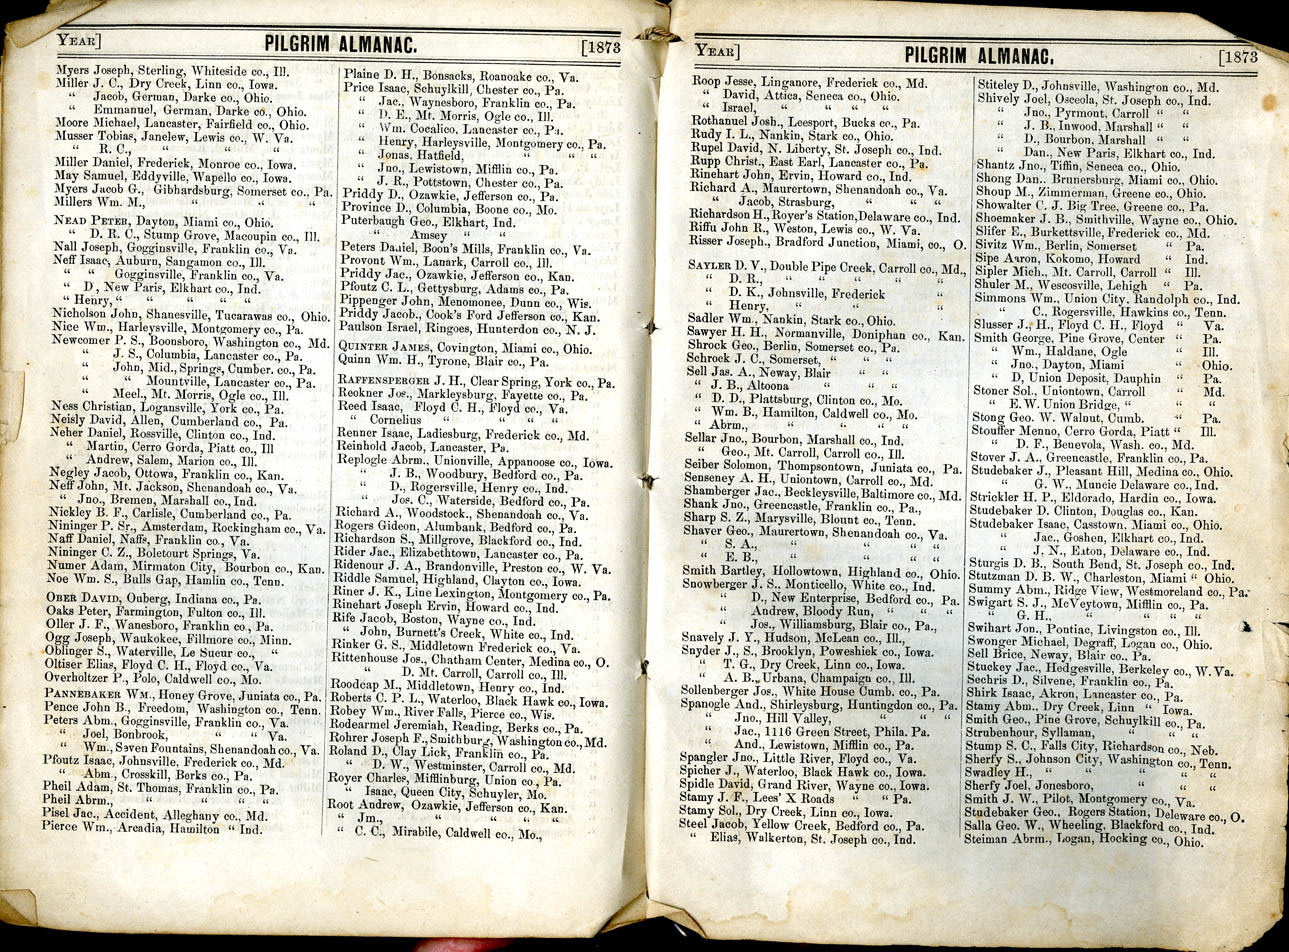 YEAR] PILGRIM ALMANAC. [1873
Myers Joseph, Sterling, Whiteside co., Ill.
Miller J. C., Dry Creek, Linn co., Iowa.
" Jacob, German, Darke co., Ohio.
" Emmanuel, German, Darke co., Ohio.
Moore Michael, Lancaster, Fairfield co., Ohio.
Musser Tobias, Janelew, Lewis co., W. Va.
" R. C., " " "
Miller Daniel, Frederick, Monroe co., Iowa.
May Samuel, Eddyville, Wapello co., Iowa.
Myers Jacob G., Gibhardsburg, Somerset co., Pa.
Millers Wm. M., " " "
NEAD PETER, Dayton, Miami co., Ohio.
" D. R. C., Stump Grove, Macoupin co., Ill.
Nall Joseph, Gogginsville, Franklin co., Va.
Neff Isaac, Auburn, Sangamon co., Ill.
" " Gogginsville, Franklin co., Va.
" D, New Paris, Elkhart co., Ind.
" Henry, " " " "
Nicholson John, Shanesville, Tucarawas co., Ohio.
Nice Wm., Harleysville, Montgomery co., Pa.
Newcomer P. S., Boonsboro, Washington co., Md.
" J. S., Columbia, Lancaster co., Pa.
" John, Mid., Springs, Cumber. co., Pa.
" " Mountville, Lancaster co., Pa.
" Meel., Mt. Morris, Ogle co., Ill.
Ness Christian, Logansville, York co., Pa.
Neisly David, Allen, Cumberland co., Pa.
Neher Daniel, Rossville, Clinton co., Ind.
" Martin, Cerro Gorda, Piatt co., Ill
" Andrew, Salem, Marion co., Ill.
Negley Jacob, Ottowa, Franklin co., Kan.
Neff John, Mt. Jackson, Shenandoah co., Va.
" Jno., Bremen, Marshall co., Ind.
Nickley B. F., Carlisle, Cumberland co., Pa.
Nininger P. Sr., Amsterdam, Rockingham co., Va.
Naff Daniel, Naffs, Franklin co., Va.
Nininger C. Z., Boletourt Springs, Va.
Numer Adam, Mirmaton City, Bourbon co., Kan.
Noe Wm. S., Bulls Gap, Hamlin co., Tenn.
OBER DAVID, Ouberg, Indiana co., Pa.
Oaks Peter, Farmington, Fulton co., Ill.
Oller J. F., Wanesboro, Franklin co., Pa.
Ogg Joseph, Waukokee, Fillmore co., Minn.
Oblinger S., Waterville, Le Sueur co., "
Oltiser Elias, Floyd C. H., Floyd co., Va.
Overholtzer P., Polo, Caldwell co., Mo.
PANNEBAKER WM., Honey Grove, Juniata co., Pa.
Pence John B., Freedom, Washington co., Tenn.
Peters Abm., Gogginsville, Franklin co., Va.
" Joel, Bonbrook, " " Va.
" Wm., Seven Fountains, Shenandoah co., Va.
Pfoutz Isaac, Johnsville, Frederick co., Md.
" Abm., Crosskill, Berks co., Pa.
Pheil Adam, St. Thomas, Franklin co., Pa.
Pheil Abrm., " " " "
Pisel Jac., Accident, Alleghany co., Md.
Pierce Wm., Arcadia, Hamilton " Ind.
Plaine D. H., Bonsacks, Roanoake co., Va.
Price Isaac, Schuylkill, Chester co., Pa.
" Jac., Waynesboro, Franklin co., Pa.
" D. E., Mt. Morris, Ogle co., Ill.
" Wm. Cocalico, Lancaster co., Pa.
" Henry, Harleysville, Montgomery co., Pa.
" Jonas. Hatfield, " " "
" Jno., Lewistown, Mifflin co., Pa.
" J. R., Pottstown, Chester co., Pa.
Priddy D., Ozawkie, Jefferson co., Pa.
Province D., Columbia, Boone co., Mo.
Puterbaugh Geo., Elkhart, Ind.
" Amsey " "
Peters Daniel, Boon's Mills, Franklin co., Va.
Provont Wm., Lanark, Carroll co., Ill.
Priddy Jac., Ozawkie, Jefferson co., Kan.
Pfoutz C. L., Gettysburg, Adams co., Pa.
Pippenger John, Menomonee, Dunn co., Wis.
Priddy Jacob., Cook's Ford Jefferson co., Kan.
Paulson Israel, Ringoes, Hunterdon co., N. J.
QUINTER JAMES, Covington, Miami co., Ohio.
Quinn Wm. H., Tyrone, Blair co., Pa.
RAFFENSPERGER J. H., Clear Spring, York co., Pa.
Reokner Jos., Markleysburg, Fayette co., Pa.
Reed Isaac, Floyd C. H., Floyd co., Va.
" Cornelius " " " "
Renner Isaac, Ladiesburg, Frederick co., Md.
Reinhold Jacob, Lancaster, Pa.
Replogle Abrm., Unionville, Appanoose co., Iowa.
" J. B., Woodbury, Bedford co., Pa.
" D., Rogersville, Henry co., Ind.
" Jos. C., Waterside, Bedford co., Pa.
Richard A., Woodstock, Shenandoah co., Va.
Rogers Gideon, Alumbank, Bedford co., Pa.
Richardson S., Millgrove, Blackford co., Ind.
Rider Jac., Elizabethtown, Lancaster co., Pa.
Ridenour J. A., Brandonville, Preston co., W. Va.
Riddle Samuel, Highland, Clayton co., Iowa.
Riner J. K., Line Lexington, Montgomery co., Pa.
Rinehart Joseph Ervin, Howard co., Ind.
Rife Jacob, Boston, Wayne co., Ind.
" John, Burnett's Creek, White co., Ind.
Rinker G. S., Middletown Frederick co., Va.
Rittenhouse Jos., Chatham Center, Medina co., O.
" D. Mt. Carroll, Carroll co., Ill.
Roodcap M., Middletown, Henry co., Ind.
Roberts C. P. L., Waterloo, Black Hawk co., Iowa.
Robey Wm., River Falls, Pierce co., Wis.
Rodearmel Jeremiah, Reading, Berks co., Pa.
Rohrer Joseph F., Smithburg, Washington co., Md.
Roland D., Clay Lick, Franklin co., Pa.
" D. W., Westminster, Carroll co., Md.
Royer Charles, Mifflinburg, Union co., Pa.
" Isaac, Queen City, Schuyler, Mo.
Root Andrew, Ozawkie, Jefferson co., Kan.
" Jm., " " " "
" C. C., Mirabile, Caldwell co., Mo.,
YEAR] PILGRIM ALMANAC. [1873
Roop Jesse, Linganore, Frederick co., Md.
" David, Attica, Seneca co., Ohio.
" Israel, " " " "
Rothanuel Josh., Leesport, Bucks co., Pa.
Rudy I. L., Nankin, Stark co., Ohio.
Rupel David, N. Liberty, St. Joseph co., Ind.
Rupp Christ., East Earl, Lancaster co., Pa.
Rinehart John, Ervin, Howard co., Ind.
Richard A., Maurertown, Shenandoah co., Va.
" Jacob, Strasburg, " " "
Richardson H., Royer's Station, Delaware co., Ind.
Riffu John R., Weston, Lewis co., W. Va.
Risser Joseph., Bradford Junction, Miami, co., O.
SAYLER D. V., Double Pipe Creek, Carroll co., Md.,
" D. R., " " " "
" D. K., Johnsville, Frederick "
" Henry, " " "
Sadler Wm., Nankin, Stark co., Ohio.
Sawyer H. H., Normanville, Doniphan co., Kan.
Shrock Geo., Berlin, Somerset co., Pa.
Schrock J. C., Somerset, " " "
Sell Jas. A., Neway, Blair " "
" J. B., Altoona " " "
" D. D., Plattsburg, Clinton co., Mo.
" Wm. B., Hamilton, Caldwell co., Mo.
" Abrm., " " " "
Sellar Jno., Bourbon, Marshall co., Ind.
" Geo., Mt. Carroll, Carroll co., Ill.
Seiber Solomon, Thompsontown, Juniata co., Pa.
Senseney A. H., Uniontown, Carroll co., Md.
Shamberger Jac., Beckleysville, Baltimore co., Md.
Shank Jno., Greencastle, Franklin co., Pa.,
Sharp S. Z., Marysville, Blount co., Tenn.
Shaver Geo., Maurertown, Shenandoah co., Va.
" S. A., " " " "
" E. B., " " " "
Smith Bartley, Hollowtown, Highland co., Ohio.
Snowberger J. S., Monticello, White co., Ind.
" D., New Enterprise, Bedford co., Pa.
" Andrew, Bloody Run, " " "
" Jos., Williamsburg, Blair co., Pa.,
Snavely J. Y., Hudson, McLean co., Ill.,
Snyder J. S., Brooklyn, Poweshiek co., Iowa.
" T. G., Dry Creek, Linn co., Iowa.
" A. B., Urbana, Champaign co., Ill.
Sollenberger Jos., White House Cumb. co., Pa.
Spanogle And., Shirleysburg, Huntingdon co., Pa.
" Jno., Hill Valley, " " "
" Jac., 1116 Green Street, Phila. Pa.
" And., Lewistown, Mifflin co., Pa.
Spangler Jno., Little River, Floyd co., Va.
Spicher J., Waterloo, Black Hawk co., Iowa.
Spidle David, Grand River, Wayne co., Iowa.
Stamy J. F., Lees' X Roads " " Pa.
Stamy Sol., Dry Creek, Linn co., Iowa.
Steel Jacob, Yellow Creek, Bedford co., Pa.
" Elias, Walkerton, St. Joseph co., Ind.
Stiteley D., Johnsville, Washington co., Md.
Shively Joel, Osceola, St. Joseph co., Ind.
" Jno., Pyrmont, Carroll " "
" J. B., Inwood, Marshall " "
" D., Bourbon, Marshall " "
" Dan., New Paris, Elkhart co., Ind.
Shantz Jno., Tiffin, Seneca co., Ohio.
Shong Dan., Brunersburg, Miami co., Ohio.
Shoup M., Zimmerman, Greene co., Ohio.
Showalter C. J. Big Tree, Greene co., Pa.
Shoemaker J. B., Smithville, Wayne co., Ohio.
Slifer E., Burkettsville, Frederick co., Md.
Sivitz Wm., Berlin, Somerset " Pa.
Sipe Aaron, Kokomo, Howard " Ind.
Sipler Mich., Mt. Carroll, Carroll " Ill.
Shuler M., Wescosville, Lehigh " Pa.
Simmons Wm., Union City, Randolph co., Ind.
" C., Rogersville, Hawkins co., Tenn.
Slusser J., H., Floyd C. H., Floyd " Va.
Smith George, Pine Grove, Center " Pa.
" Wm., Haldane, Ogle " Ill.
" Jno., Dayton, Miami " Ohio.
" D, Union Deposit, Dauphin " Pa.
Stoner Sol., Uniontown, Carroll " Md.
" E. W. Union Bridge, " " "
Stong Geo. W. Walnut, Cumb. " Pa.
Stouffer Menno, Cerro Gorda, Piatt " Ill.
" D. F., Benevola, Wash. co., Md.
Stover J. A., Greencastle, Franklin co., Pa.
Studebaker J., Pleasant Hill, Medina co., Ohio.
" G. W., Muncie Delaware co., Ind.
Strickler H. P., Eldorado, Hardin co., Iowa.
Studebaker D. Clinton, Douglas co., Kan.
Studebaker Isaac, Casstown, Miami co., Ohio.
" Jac., Goshen, Elkhart co., Ind.
" J. N., Eaton, Delaware co., Ind.
Sturgis D. B., South Bend, St. Joseph co., Ind.
Stutzman D. B. W., Charleston, Miami " Ohio.
Summy Abm., Ridge View, Westmoreland co., Pa.
Swigart S. J., McVeytown, Mifflin co., Pa.
" G. H., " " " "
Swihart Jon., Pontiac, Livingston co., Ill.
Swonger Michael, Degraff, Logan co., Ohio.
Sell Brice, Neway, Blair co., Pa.
Stuckey Jac., Hedgesville, Berkeley co., W. Va.
Sechris D., Silvene, Franklin co., Pa.
Shirk Isaac, Akron, Lancaster co., Pa.
Stamy Abm., Dry Creek, Linn " Iowa.
Smith Geo., Pine Grove, Schuylkill co., Pa.
Strubenhour, Syllaman, " " "
Stump S. C., Falls City, Richardson co., Neb.
Sherfy S., Johnson City, Washington co., Tenn.
Swadley H., " " " " "
Sherfy Joel, Jonesboro, " " "
Smith J. W., Pilot, Montgomery co., Va.
Studebaker Geo., Rogers Station, Deleware co., O.
Salla Geo. W., Wheeling, Blackford co., Ind.
Steiman Abrm., Logan, Hocking co., Ohio.